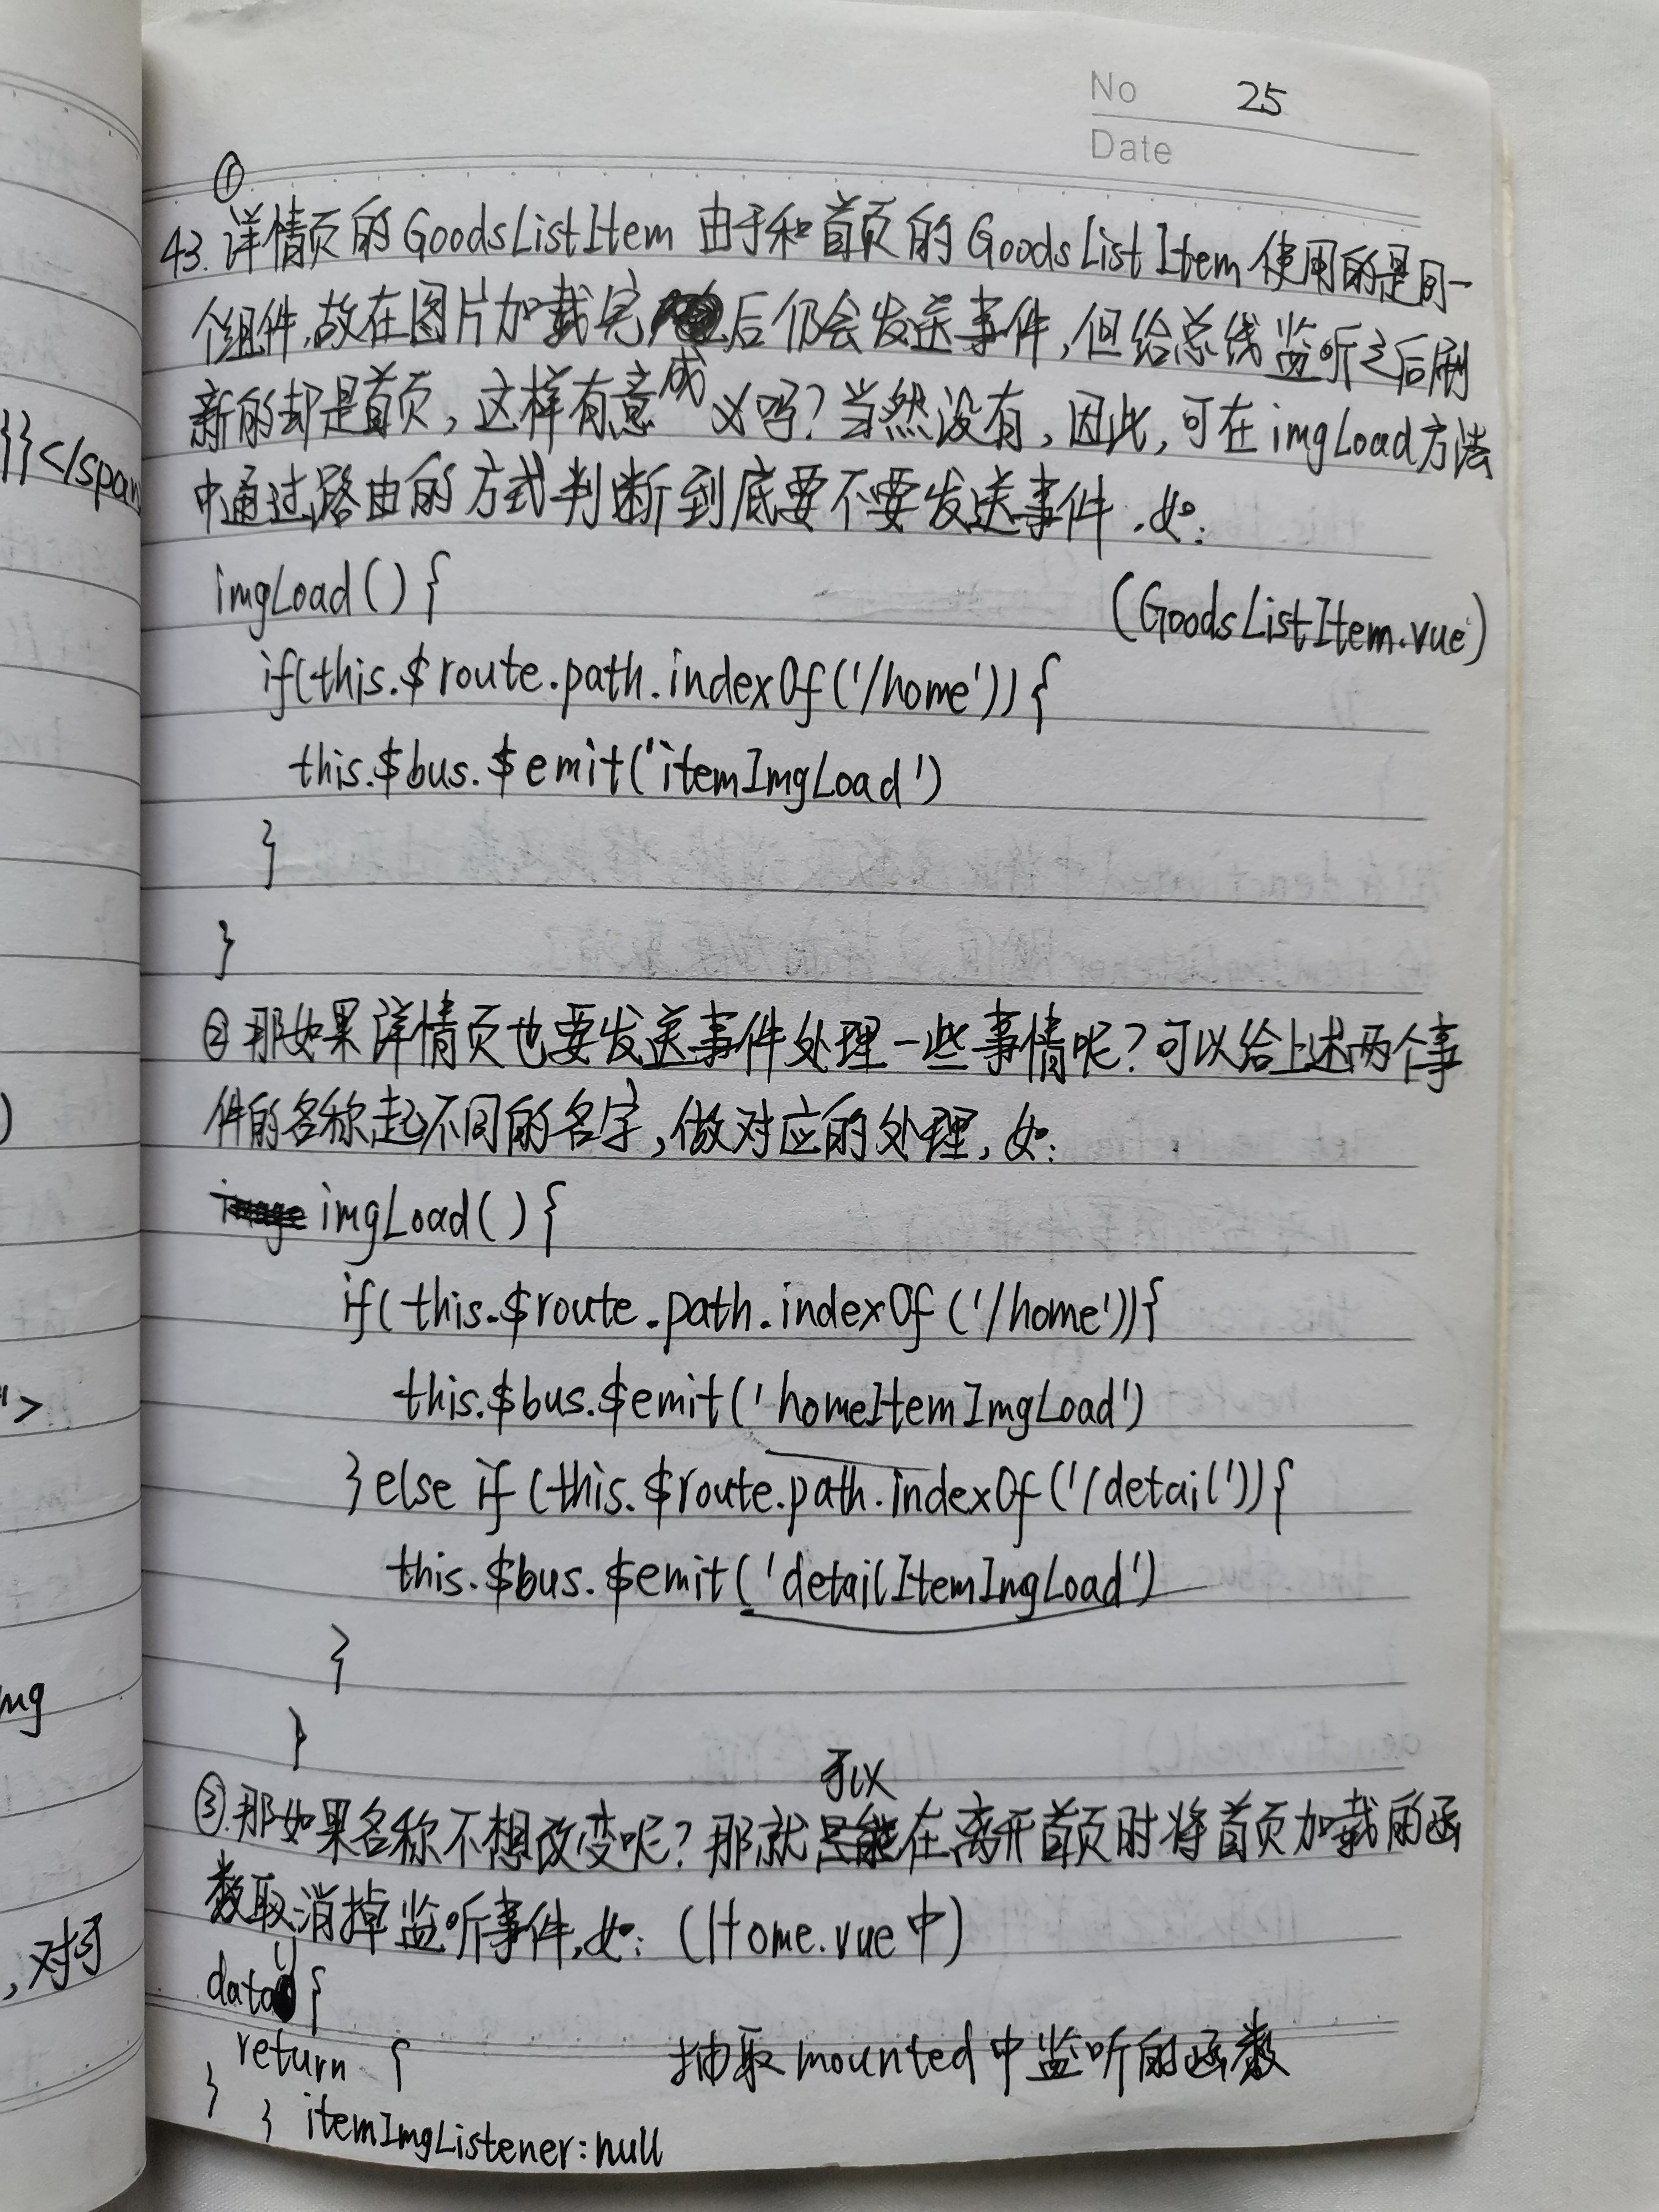 No 25
Date
①
43. 详情页的GoodsListItem 由于和首页的GoodsListItem使用的是同一
个组件,故在图片加载完后仍会发送事件,但给总线监听之后刷
新的却是首页,这样有意成义吗?当然没有,因此,可在imgLoad方法
中通过路由的方式判断到底要不要发送事件.如:
imgLoad(){
(GoodsListItem.vue)
if(this.$route.path.indexOf('/home')){
this.$bus.$emit('itemImgLoad')
}
}
②那如果详情页也要发送事件处理一些事情呢?可以给上述两个事
件的名称起不同的名字,做对应的处理,如:
imgLoad(){
if(this.$route.path.indexOf('/home')){
this.$bus.$emit('homeItemImgLoad')
}else if(this.$route.path.indexOf('/detail')){
this.$bus.$emit('detailItemImgLoad')
}
}
可以
③.那如果名称不想改变呢?那就只能在离开首页时将首页加载的函
数取消掉监听事件,如:(Home.vue中)
data(){
return {
抽取mounted中监听的函数
} } itemImgListener:null
}}</span
)
">
mg
,对于